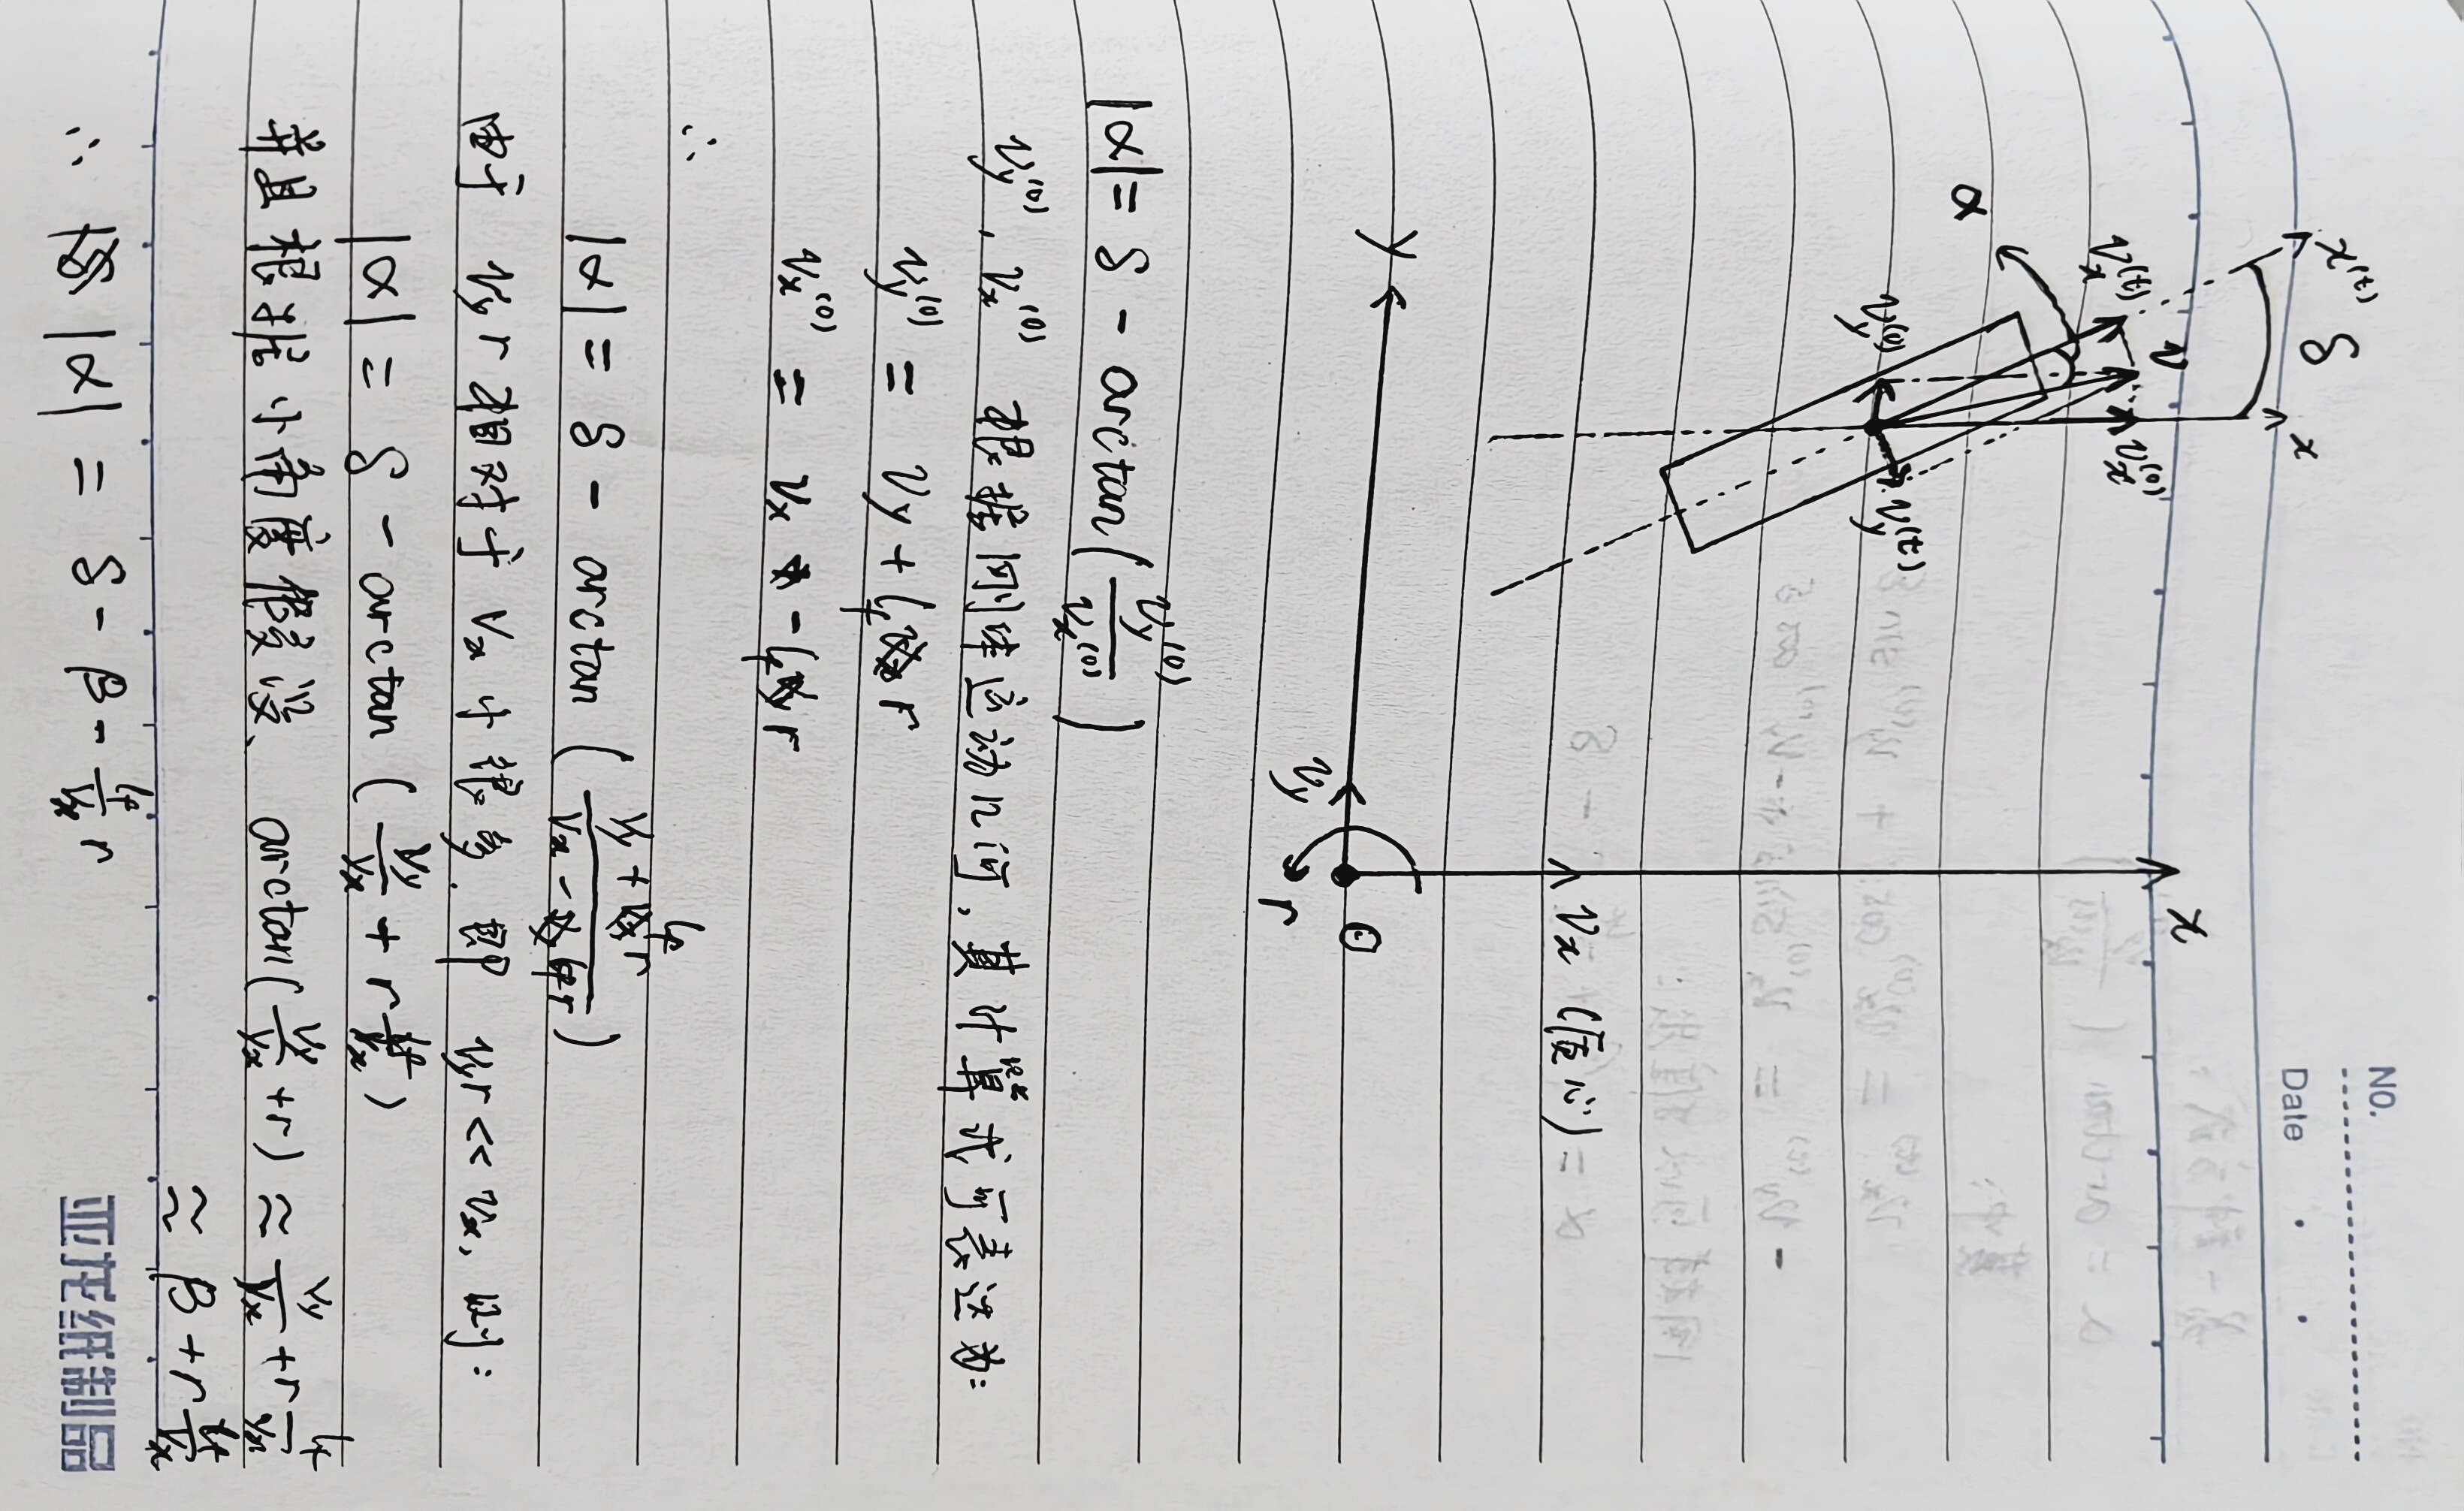 NO.
Date
x^(t)
δ
x
v_x^(t)
v
v_x^(0)
α
v_y^(0)
v_y^(t)
x
v_x (质心)
y
v_y
r
O
|α| = δ - arctan( v_y^(0) / v_x^(0) )
v_y^(0), v_x^(0) 根据刚体运动几何, 其计算式可表达为:
v_y^(0) = v_y + l_f r
v_x^(0) = v_x - l_y r
∴ |α| = δ - arctan ( (v_y + l_f r) / (v_x - l_y r) )
由于 l_y r 相对于 v_x 十分, 即 l_y r << v_x, 则:
|α| = δ - arctan ( v_y/v_x + r l_f/v_x )
并且根据小角度假设、 arctan( v_y/v_x + r) ≈ v_y/v_x + r l_f/v_x
≈ β + r l_f/v_x
∴ |α| = δ - β - l_f/v_x r
亚龙纸制品